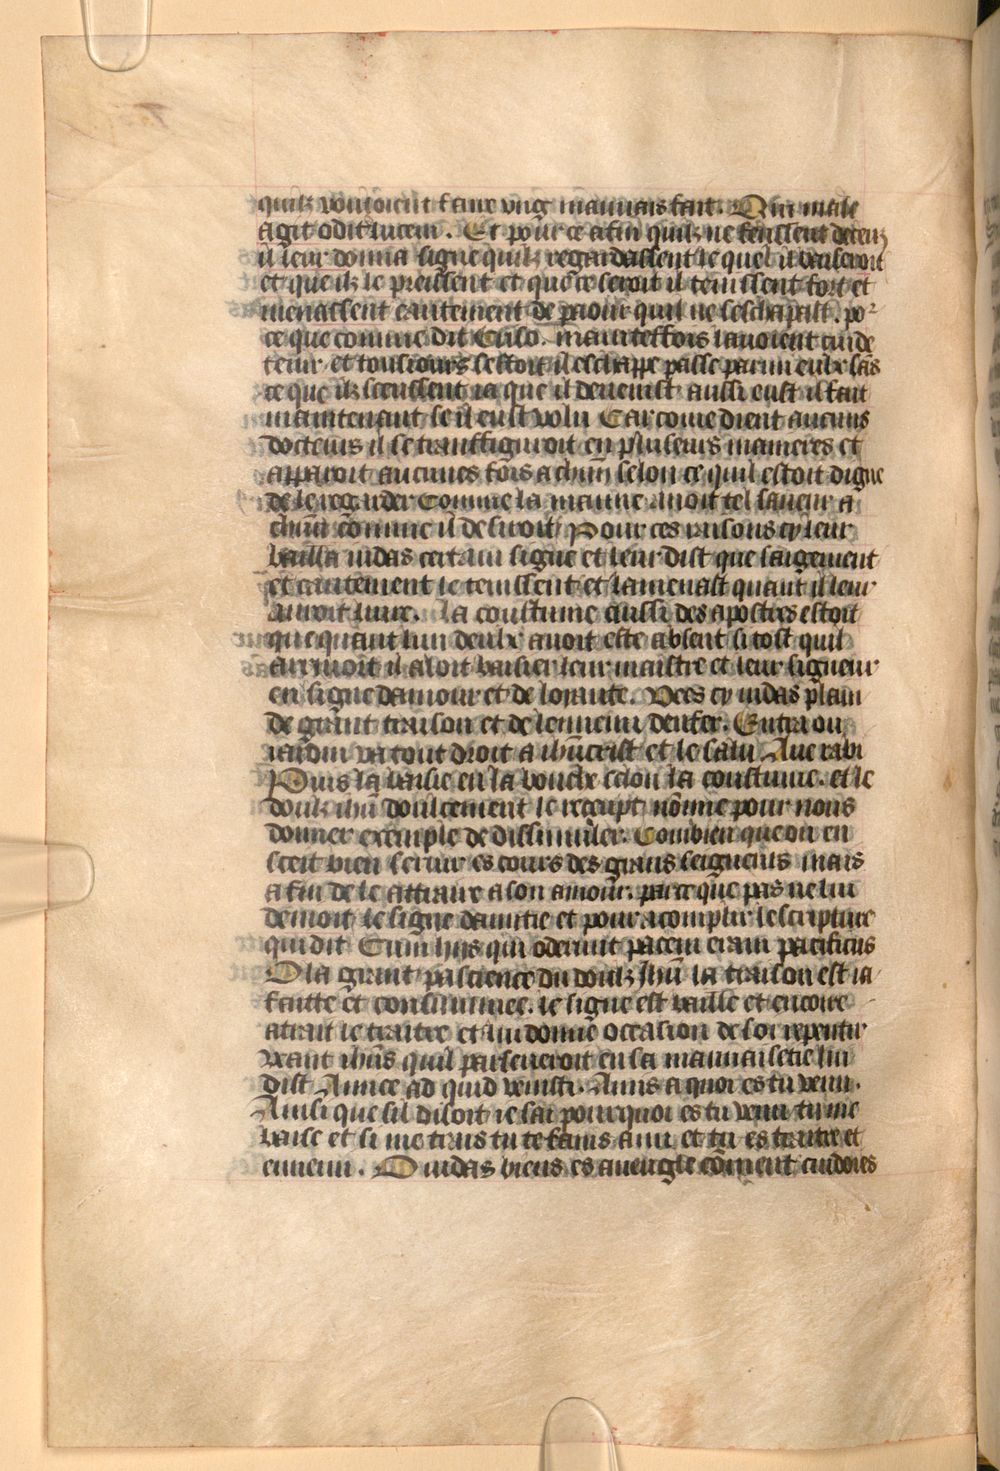 quilz vouloient faire vng mauuais fait. Qui male
agit odit lucem. Et pour ce afin quilz ne feussent deceuz
il leur donna signe quilz regardassent le quel il baiseroit
et que ilz le preissent et que ce seroit il tenissent fort et
menassent cautement de paour quil ne seschapast. po²
ce que comme dit Criso. maintesfois lauoient cuide
tenir et tousiours sestoit il eschappe passe parmi eulx sãs
ce que ilz sceussent ia que il deuenist aussi eust il fait
maintenant se il eust volu Car come dient aucuns
docteurs il se transfiguroit en pluseurs manieres et
apparoit aucunes fois a chũn selon ce quil estoit digne
de le regarder Comme la manne auoit tel saueur a
chũn comme il desiroit Pour ces raisons cy leur
bailla iudas certain signe et leur dist que saigement
et cautement le tenissent et lamenast quant il leur
auroit liure. la coustume aussi des apostres estoit
que quant lun deulx auoit este absent si tost quil
arriuoit il aloit baisier leur maistre et leur signeur
en signe damour et de loyaute. Vees cy iudas plain
de grant traison et de lennemi denfer. Entra ou
iardin va tout droit a ihũcrist et le salu Aue rabi
Puis la baisie en la bouche selon la coustume. et le
doulz ihũ doulcement le receupt nõmie pour nous
donner exemple de dissimuler. Combien que on en
sceit bien seruir es cours des grans seigneurs mais
a fin de le attraire a son amour. parce que pas ne lui
demoit le signe damitie et pour acomplir lescripture
qui dit Cum hijs qui oderunt pacem eram pacificus
O la grant pascience du doulz Jhũ la traison est ia
faitte et consummee. le signe est baille et encore
atrait le traitre et lui donne occasion de soi repentir
veant ihũs quil parseueroit en sa mauuaisetie lui
dist Amice ad quid venisti. Amis a quoi es tu venu.
Ainsi que sil disoit ie sai pourquoi es tu venu tu me
baise et si me trais tu te fains ami et tu es traitre et
ennemi. O iudas biens es aueugle cõment cuidoies